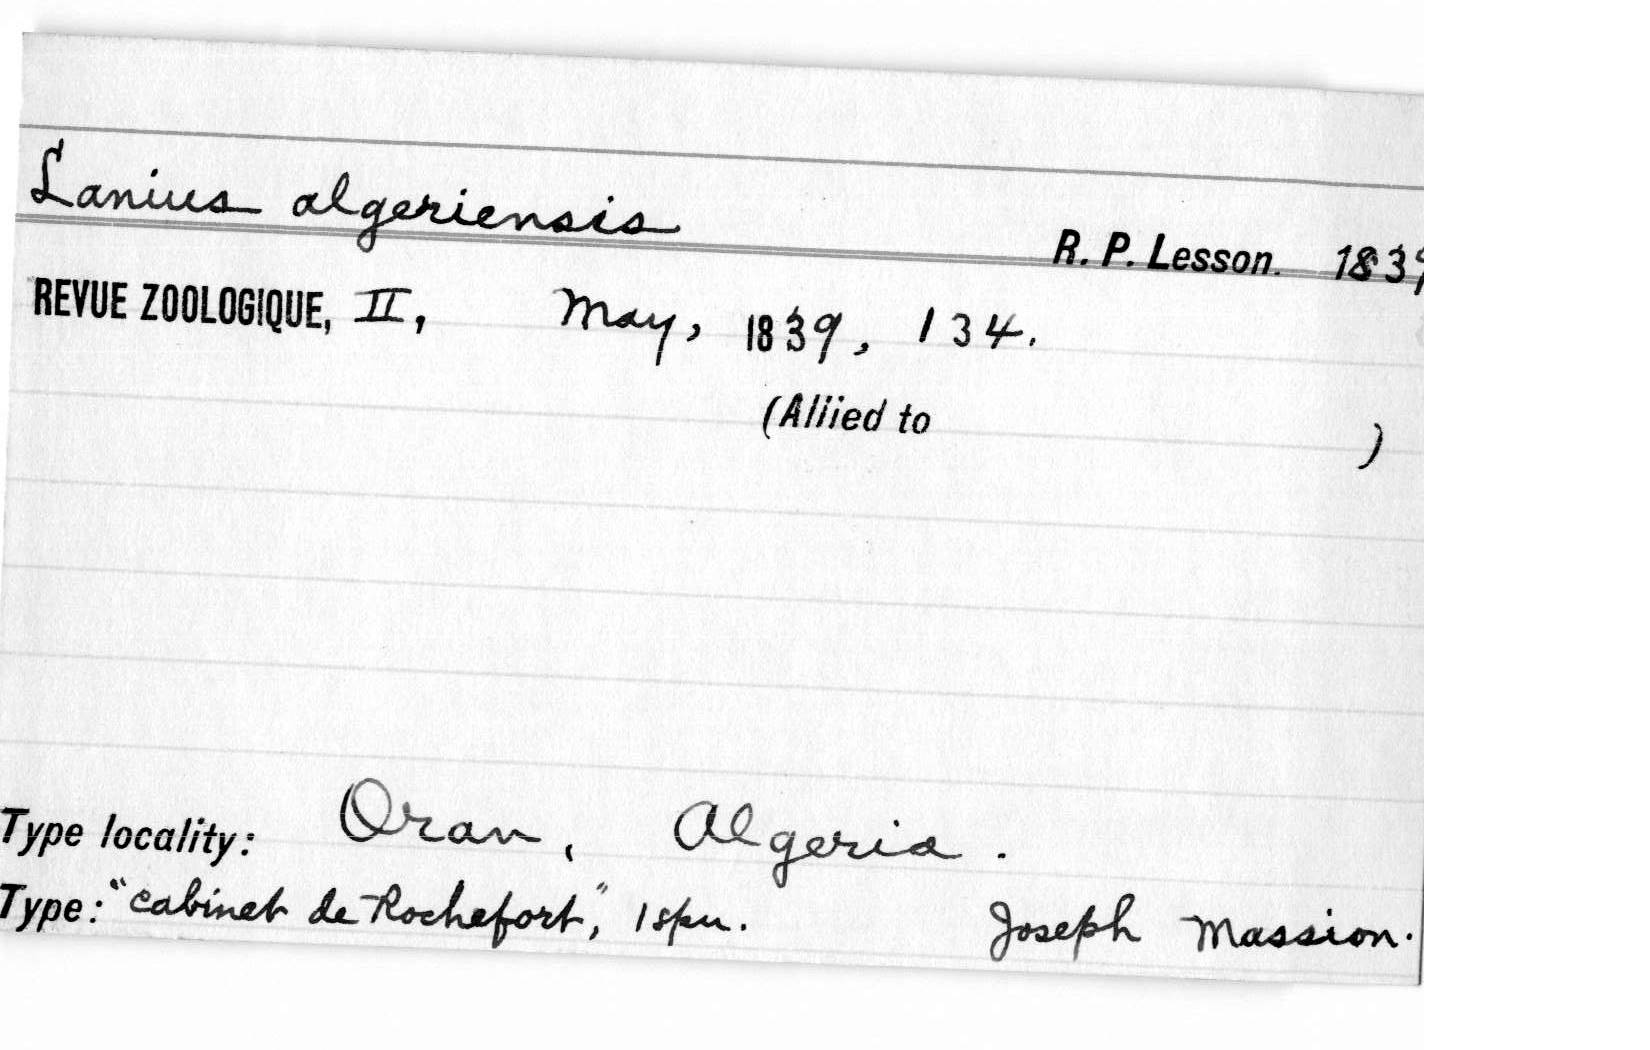 Lanius algeriensis R. P. Lesson. 1839
REVUE ZOOLOGIQUE, II, May, 1839, 134.
(Allied to )
Type locality: Oran, Algeria.
Type: "Cabinet de Rochefort", 1 spm. Joseph Massion.